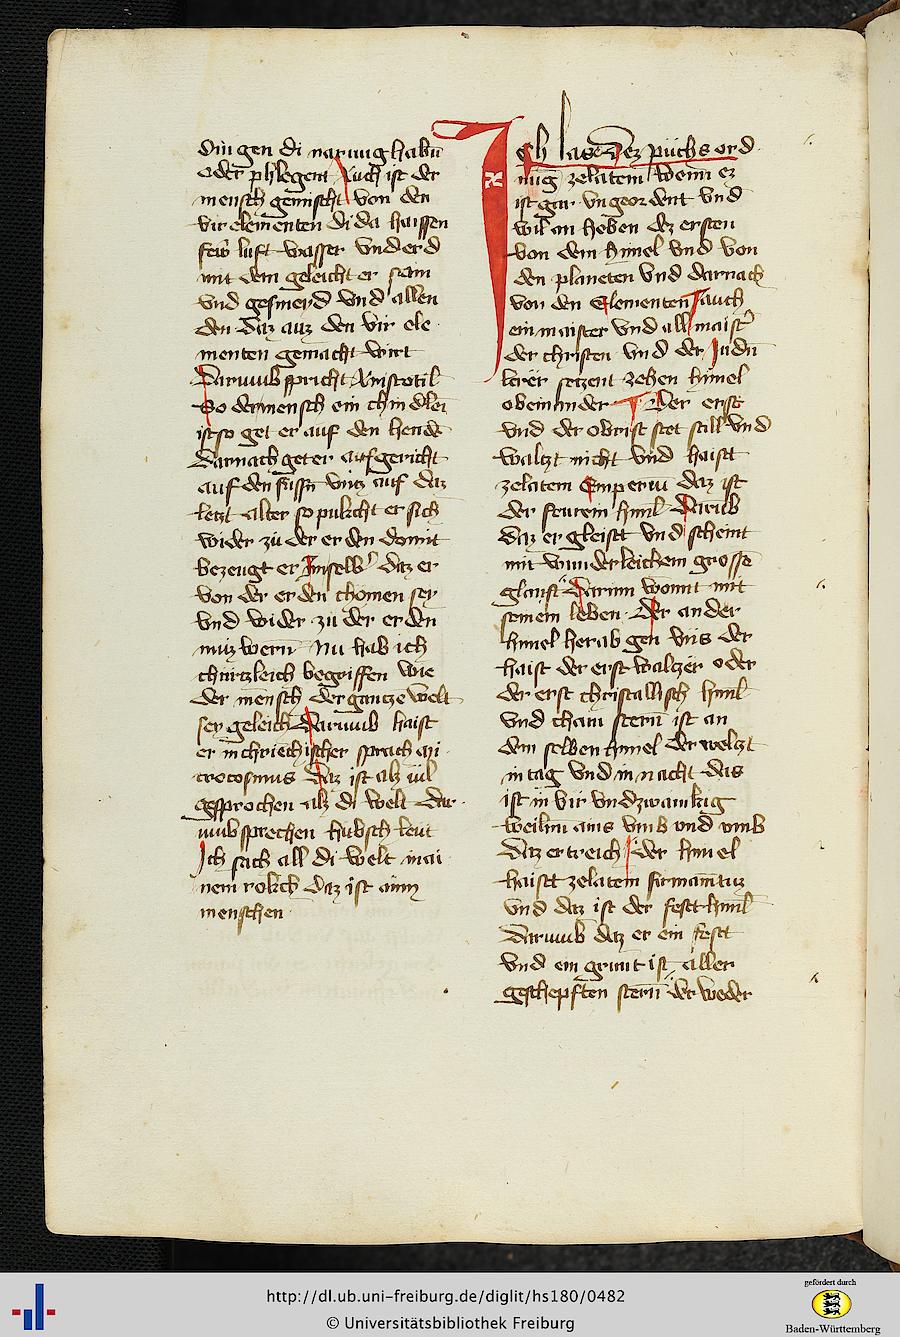 dingen di narung habn̄
oder phlegent Auch ist der
mensch gemischt von den
vir elementen di da haissen
fewr luft wasser vnd erd
mit dem geleicht er sam
vnd gesmeyd vnd allen
den daz auz den vir ele
menten gemacht wirt
Darumb spricht Aristotil
So der mensch ein chindlei
ist so get er auf den hende
Darnach get er aufgericht
auf den fussn̄ vntz auf daz
letzt alter so pukcht er sich
wider zu der erden domit
bezeugt er Im selb daz er
von der erden chomen sey
vnd wider zu der erden
muz wern̄ Nu hab ich
churtzleich begriffen wie
der mensch der gantze welt
sey geleich Darumb haist
er in chriechischer sprach mi
crocosmus Daz ist alz vil
gesprochen alz di welt Dar
umb sprechen hubsch leut
Ich sach all di welt in ai
nem rokch daz ist aim
menschen
Ich lase dez puchs ord
nūg zelatem Wenn ez
ist gar vngeordent vnd
wil an heben dez ersten
von dem himel vnd von
den planeten vnd darnach
von den Elementen auch
ein maister vnd all maist̄
der christen vnd der Judn̄
lerer setzent zehen himel
obeinander Der erst
vnd der obrist stet still vnd
waltzt nicht vnd haist
zelatem Emperiu daz ist
der feurein himl Darūb
daz er gleist vnd scheint
mit wunderleichem grosse
glanst Darinn wont mit
seinem leben Der ander
himel herab gen vns der
haist der erst waltzer oder
der erst christallisch himl
vnd chain stern̄ ist an
dem selben himel der weltzt
in tag vnd in nacht das
ist in vir vnd zwainkzig
weiln̄ ains vmb vnd vmb
daz ertreich der himel
haist zelatem firmamētuz
vnd daz ist der fest himl
Darumb daz er ein fest
vnd ein grunt ist aller
geschepften stern̄ der weder
http://dl.ub.uni-freiburg.de/diglit/hs180/0482
© Universitätsbibliothek Freiburg
gefördert durch
Baden-Württemberg